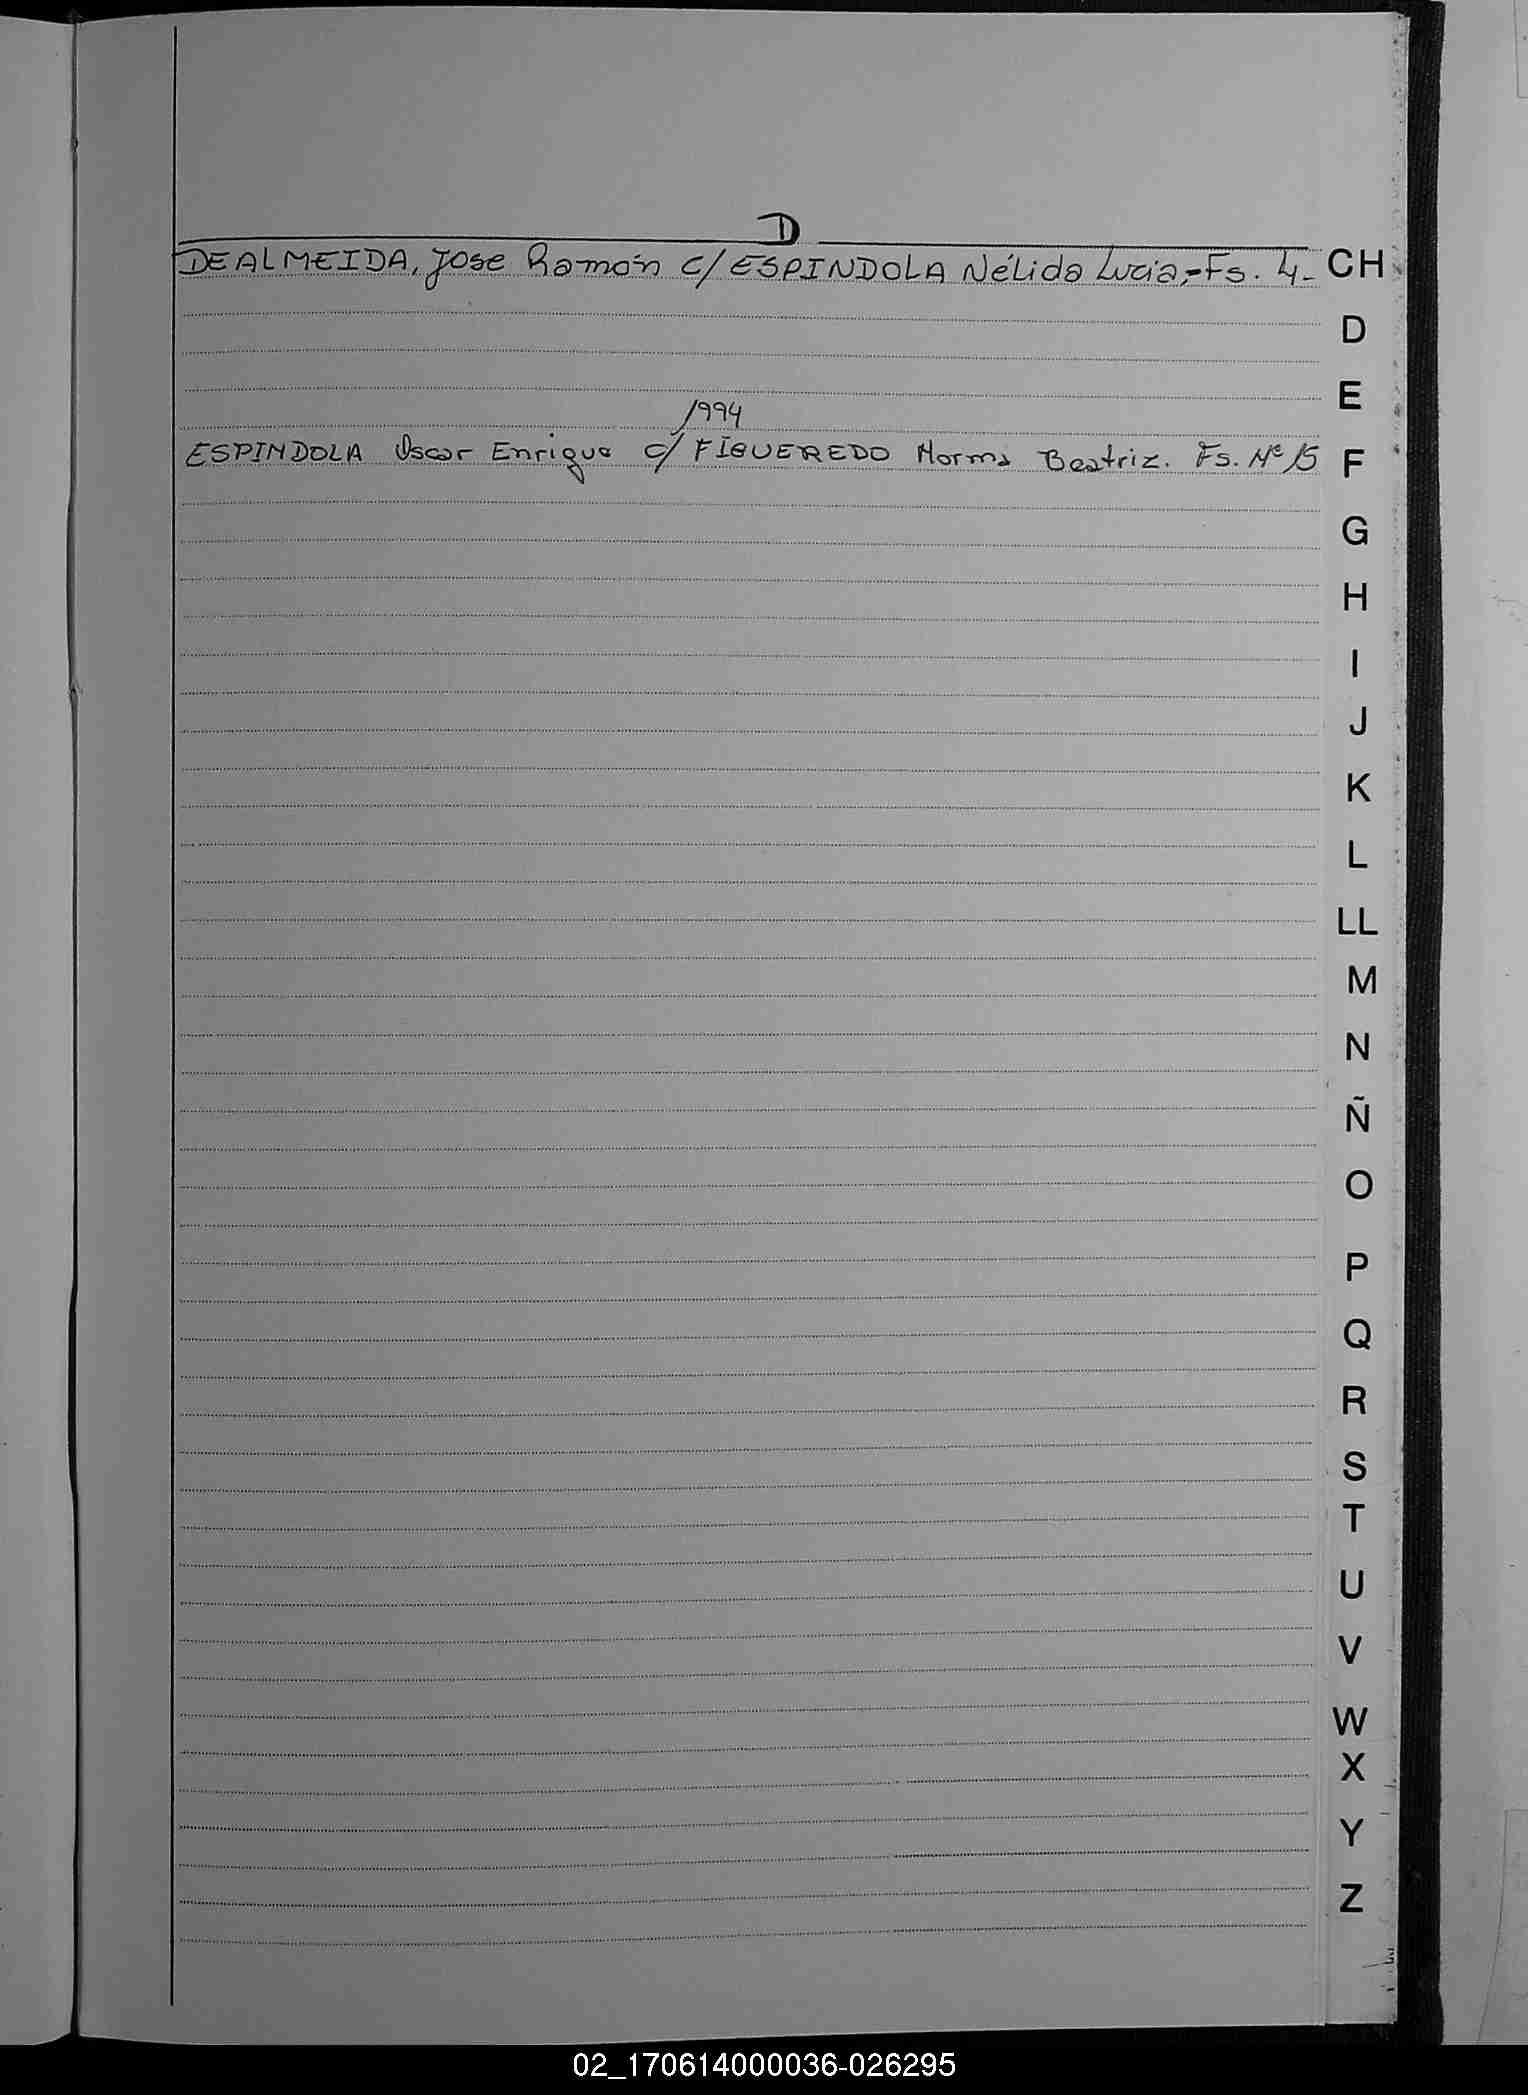 D
DEALMEIDA, Jose Ramón c/ ESPINDOLA Nélida Lucia,-Fs. 4-
1994
ESPINDOLA Oscar Enrique c/ FIGUEREDO Norma Beatriz. Fs. Nº 15
CH
D
E
F
G
H
I
J
K
L
LL
M
N
Ñ
O
P
Q
R
S
T
U
V
W
X
Y
Z
02_170614000036-026295